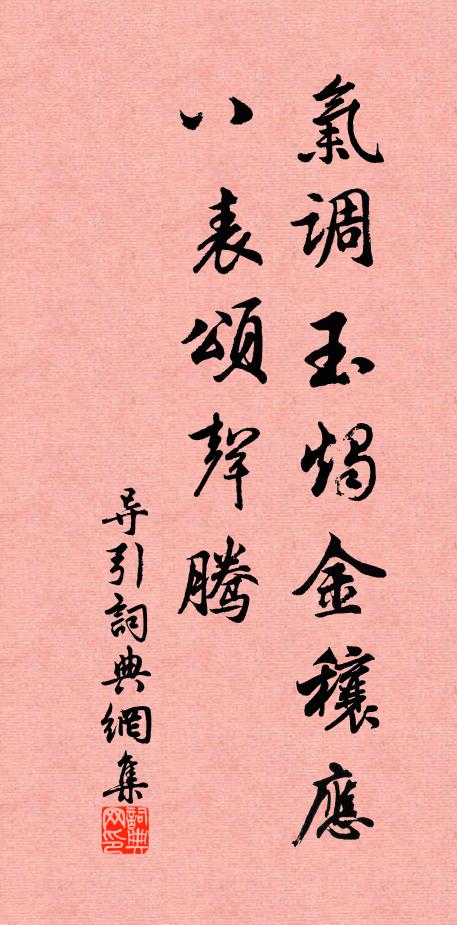 氣調玉燭金穰應
八表頌聲騰
导引詞典網集
詞典网印